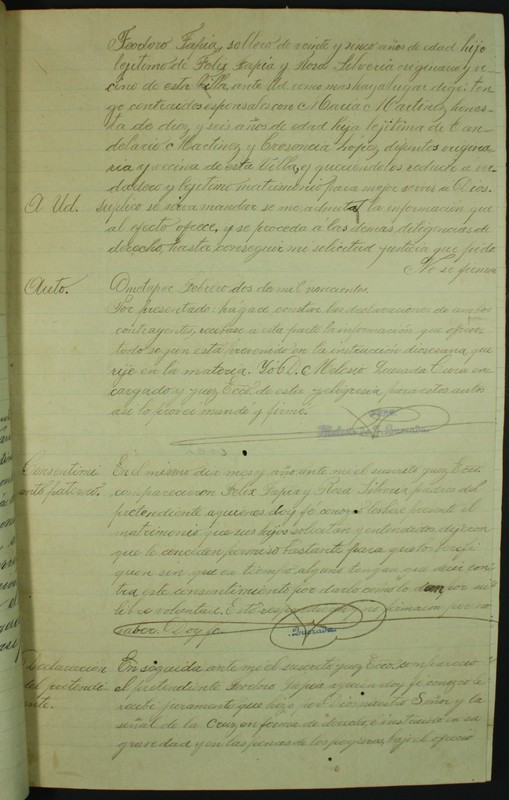 Teodoro Tapia, soltero de veinte y cinco años de edad hijo
legitimo de Felix Tapia y Rosa Silveria originario y ve-
cino de esta Villa, ante Ud. como mas haya lugar digo: ten-
go contraidos esponsales con Maria Martinez hones-
ta de diez y seis años de edad hija legitima de Can-
delario Martinez y Cresencia Lopez, difuntos origina-
ria y vecina de esta Villa, y queriendolos reducir a ver-
dadero y legitimo matrimonio para mejor servir a Dios.
A Ud. suplico se sirva mandar se me admita la información que
al efecto ofrece, y se proceda á las demas diligencias de
derecho, hasta conseguir mi solicitud y justicia que pido
No se firmar
Auto. Ometepec Febrero dos de mil novecientos.
Por presentado: hágace constar las declaraciones de ambos
contrayentes, recibase a esta parte la información que ofrece
todo segun está prevenido en la instrucción diocesana que
rije en la materia. Yó D. Melesio Quesada Cura en-
cargado y juez Ecco. de esta feligresia para estos autos
asi lo proveí mandé y firmé.
Consentimi-
ento paterno. En el mismo dia mes y año, ante mi el suscrito juez Ecco.
comparecieron Felix Tapia y Rosa Silveria padres del
pretendiente a quienes doy fe conozco les hice presente el
matrimonio que sus hijos solicitan y entendidos dijeron
que le conceden permiso bastante para que lo verifi-
quen sin que en tiempo alguno tengan que decir con-
tra este consentimiento por darlo como lo dan por su
libre voluntad. Esto respondieron no firmaron por no
saber. Doy fe.
Quesada
Declaracion
del pretendi-
ente. En seguida ante mi el suscrito juez Ecco. comparecio
el pretendiente Teodoro Tapia a quien doy fe conozco le
recibi juramento que hizo por Dios nuestro Señor y la
señal de la Cruz, en forma de derecho, é instruido en su
gravedad y en las penas de los perjuros, bajo el ofrecio